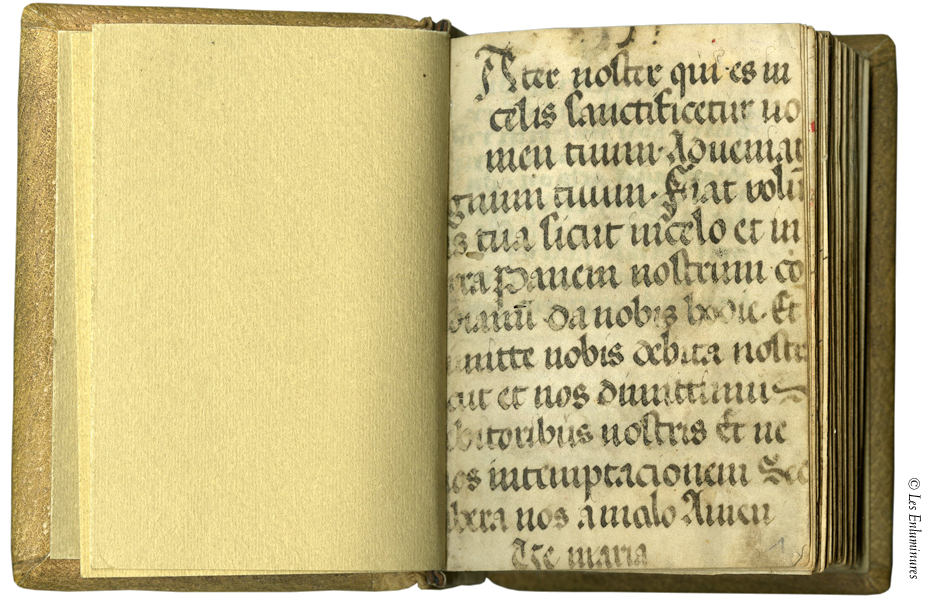 Ater noster qui es in
celis sanctificetur no
men tuum. Adveniat
gnum tuum. Fiat volū
is tua sicut in celo et in
rra Panem nostrum co
dianū da nobis hodie. Et
mitte nobis debita nostr
cut et nos dimittimus
ebitoribus nostris Et ne
nos in temptacionem Sed
ibera nos a malo Amen
Ave maria
1
© Les Enluminures